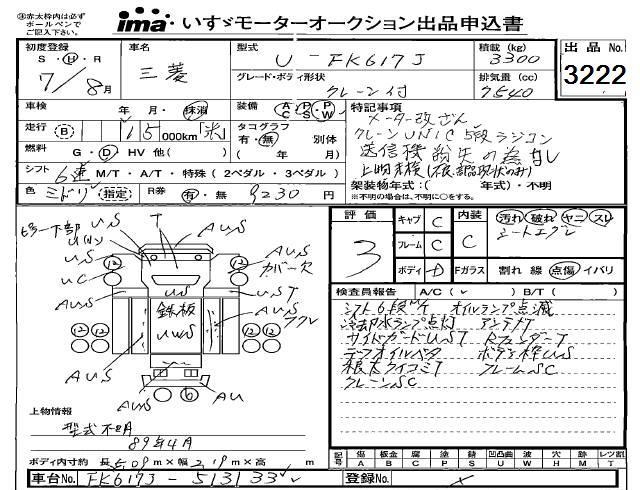 ※赤太枠内は必ず
ボールペンで
ご記入下さい。
ima いすゞモーターオークション出品申込書
初度登録 S・H・R 7/8月
車名 三菱
型式 U-FK617J
グレード・ボディ形状 クレーン付
積載(kg) 3300
排気量(cc) 7540
出品No. 3222
車検 年 月・抹消
装備 AC PS PW
走行 B 115000km 米
タコグラフ 有・無 別体 ( 年 月)
燃料 G・D HV 他( )
シフト 6速 M/T・A/T・特殊(2ペダル・3ペダル)
色 ミドリ(指定) R券 有・無 9230円
特記事項
メーター改ざん
クレーンUNIC 5段ラジコン
送信機紛失の為なし
上物未検
架装物年式:( 年式)・不明
※不明の場合は、不明に○をする。
評価 3
キャブ C
フレーム C
ボディ D
内装 C
Fガラス
汚れ 破れ ヤニ スレ
シートエグレ
割れ 線 点傷 イバリ
検査員報告 A/C( ✓ ) B/T( )
シフト6段 オイルランプ点滅
冷却水ランプ点灯 アンテナT
サイドガードUST RフェンダーT
デフオイルベタ ボディ枠UUS
根太ライコミT フレームSC
クレーンSC
ピラー下部 US
T
AUS
AUS
カバー欠
UC
AUS
US
UST
鉄板
UWS
AUS
AUS
AUS
AU
上物情報
型式不明
89年4月
ボディ内寸約 長5.09m×幅2.19m×高 m
車台No. FK617J-513133
登録No.
記号 傷A 板金B 腐C 塗P 錆S 凹凸曲U 波W 穴H 跡M レツ割T